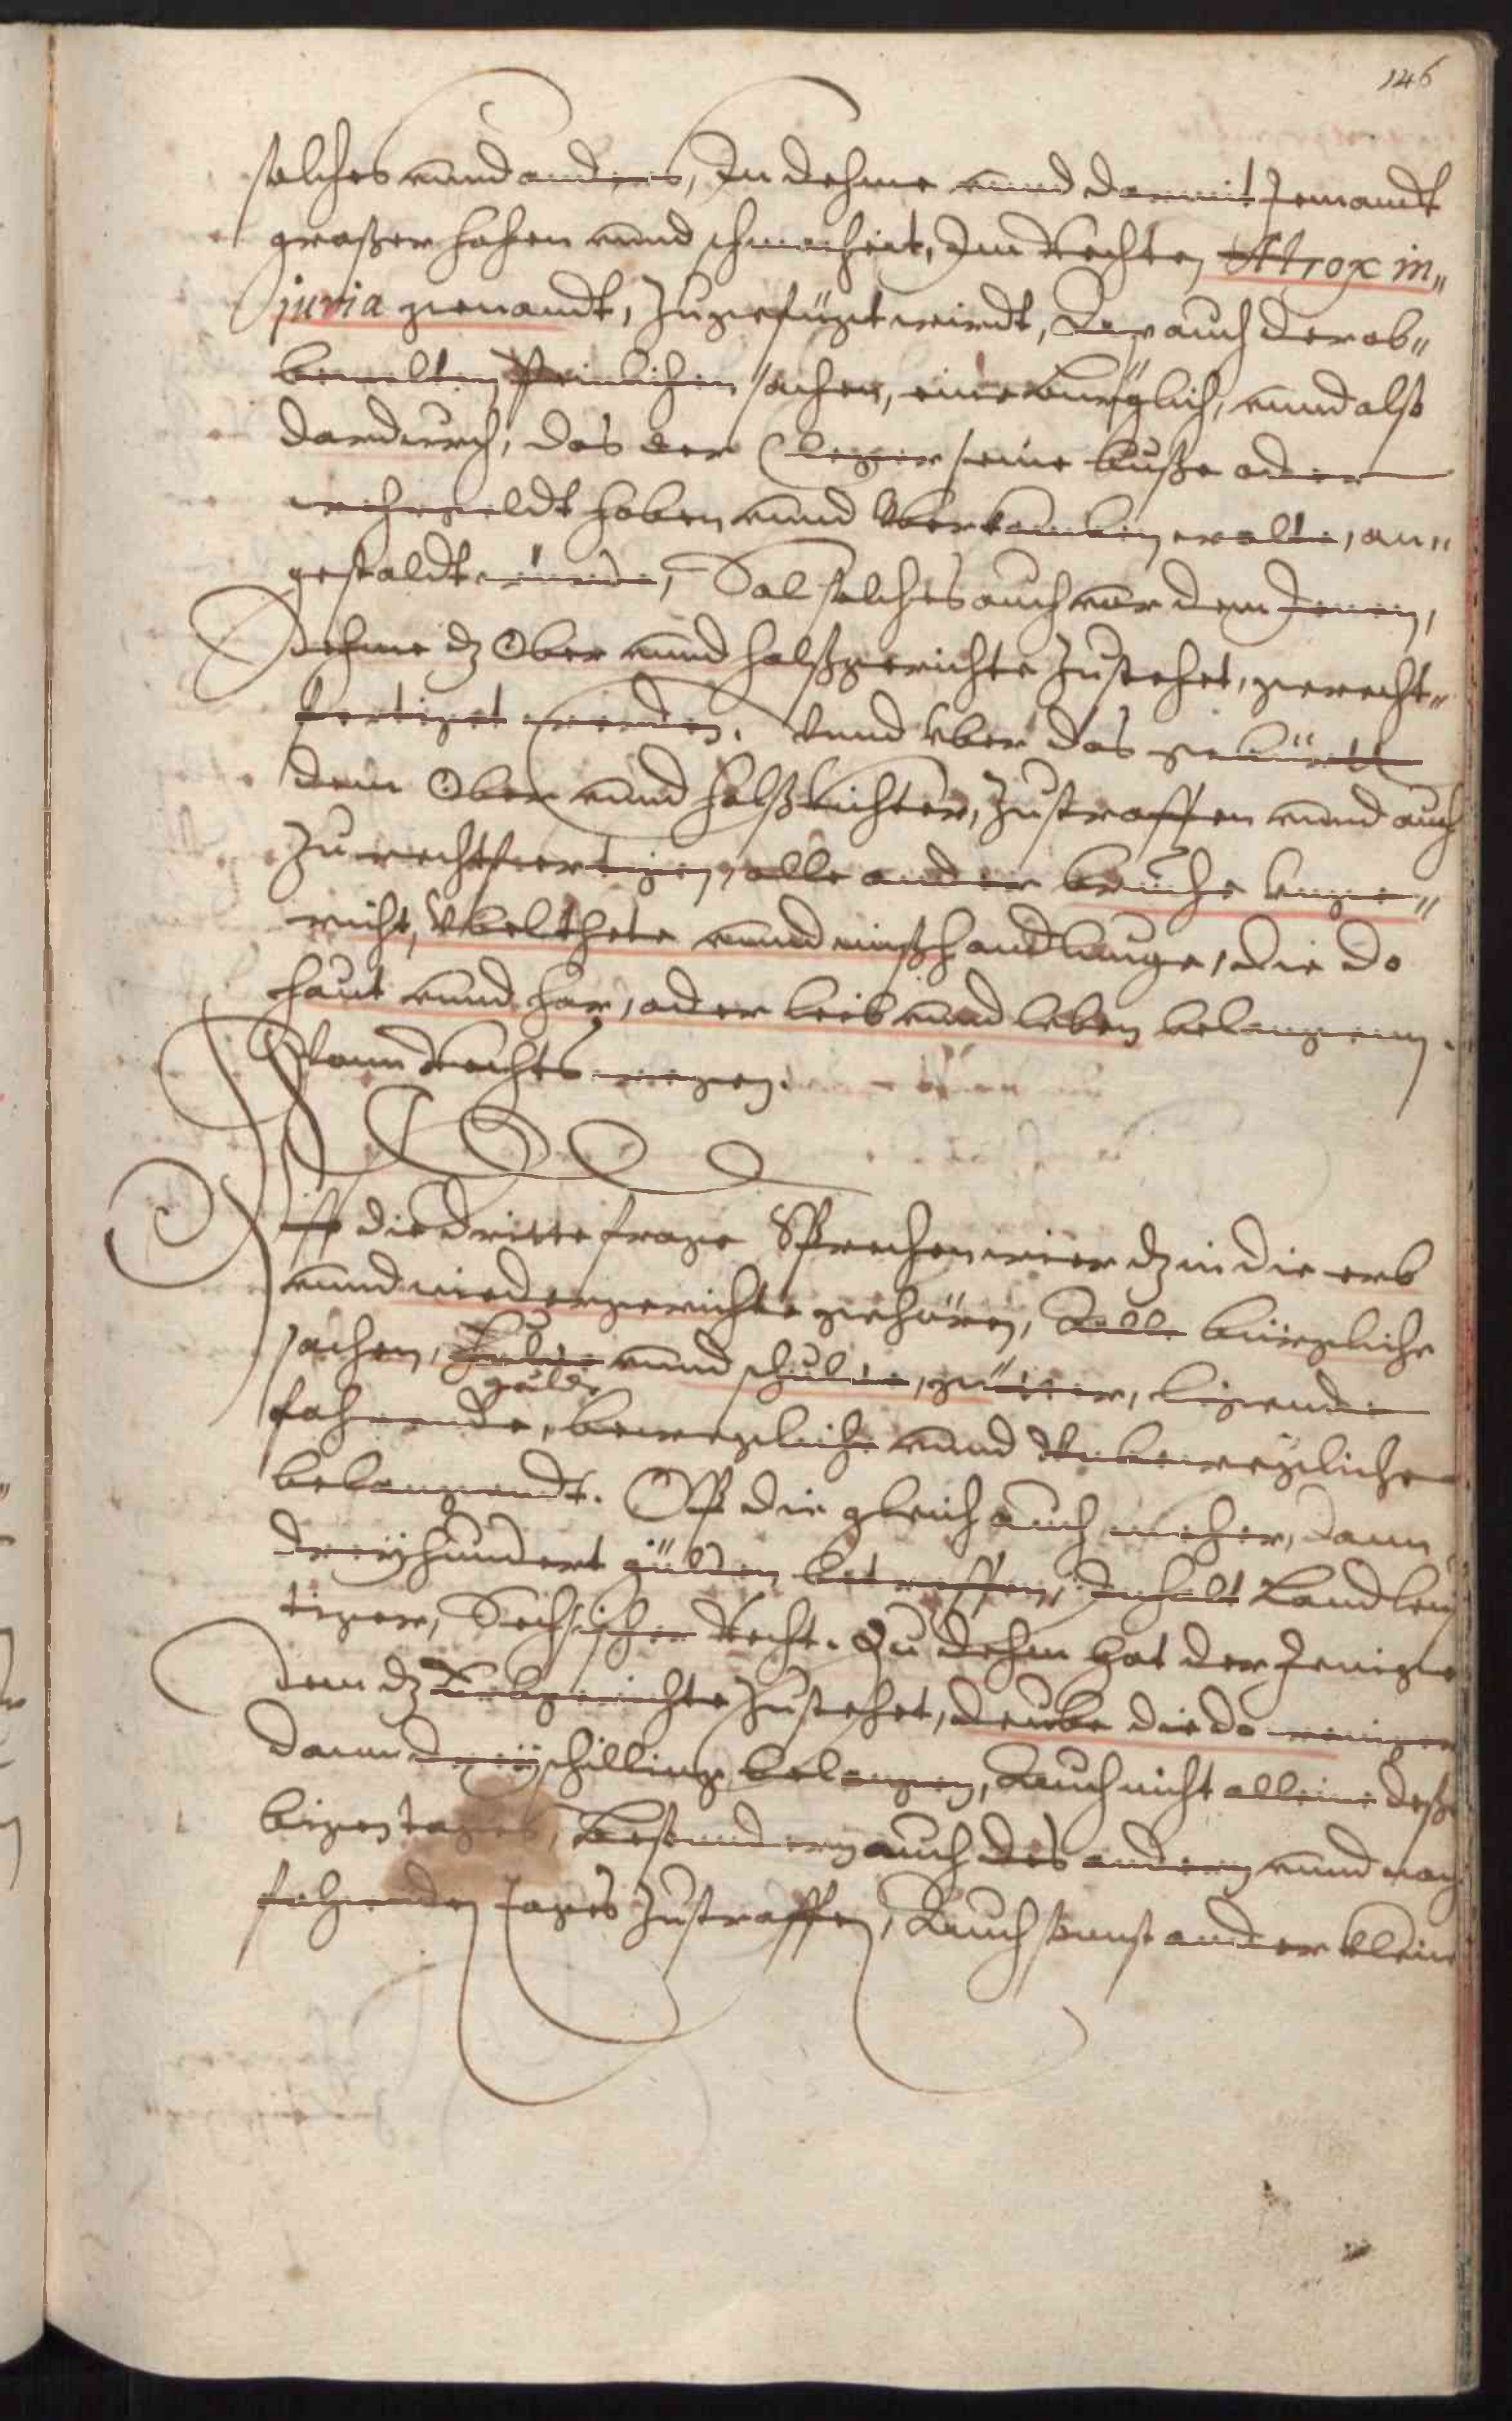 146
solches unnd anders, In dehme unnd darmit Jemandt
großer hohen unnd schmacheit, Im Rechten Atrox in„
juria genandt, zugefügt wirdt, Ader auch der ob„
bemelten Peinlichen sachen, eine burglich, unnd also
dardurch, das der Cleger seine busse oder
wehrgeldt haben unnd Uberkomben wolte, an„
gestaldt würde, Sal solches auch vor dem Jenen,
Dehme dz Ober unnd halßgerichte zustehet, gerecht„
fertiget werden. Unnd uber das gebürtt
dem Ober unnd halß Richter, zustraffen unnd auch
zu rechtfertigen, alle ander bruche unge„
richt, Ubelthete unnd mißhandlunge, die do
haut unnd har, oder leib unnd leben belangenn.
Vonn Rechts wegen.
Uff die dritte frage Sprechen wier dz in die erb
unnd niedergerichte gehören, Alle bürgliche
sachen, Hulde unnd schulde, gütter, ligende
güld
fahrende, bewegliche unnd Unbewegliche
belangendt. Ob die gleich auch meher, dann
dreyhundert gülden betreffen, Inhalt Landleuf
tiger, Sechsischer Recht. Zu dehm hat der Jenige
dem dz Erbgerichte zustehet, deube die do weniger
dann drey schilling belangen, Auch nicht alleine deße
bigen tages, Besondern auch des andern unnd nach
folgenden tages zustraffen, Auch sonst ander kleine